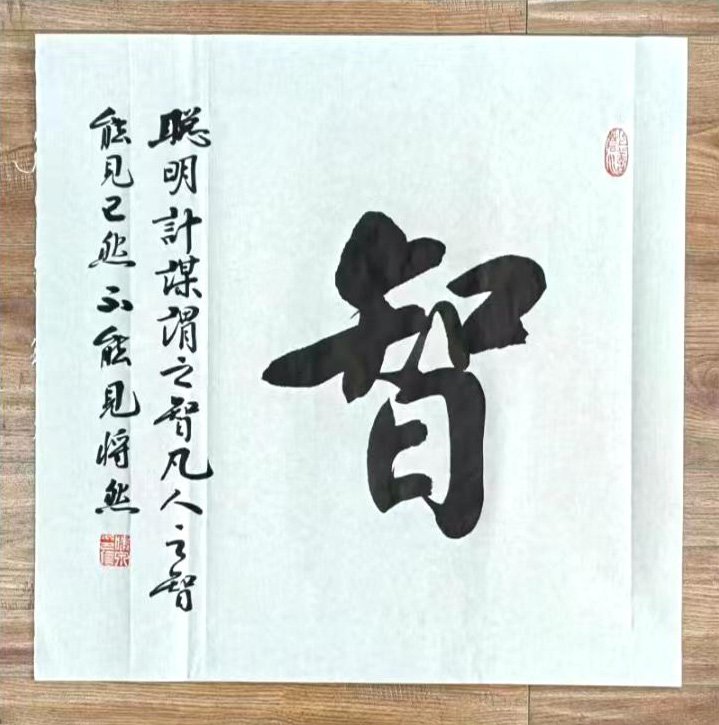 智
聪明計謀謂之智凡人之智
能見已然不能見将然